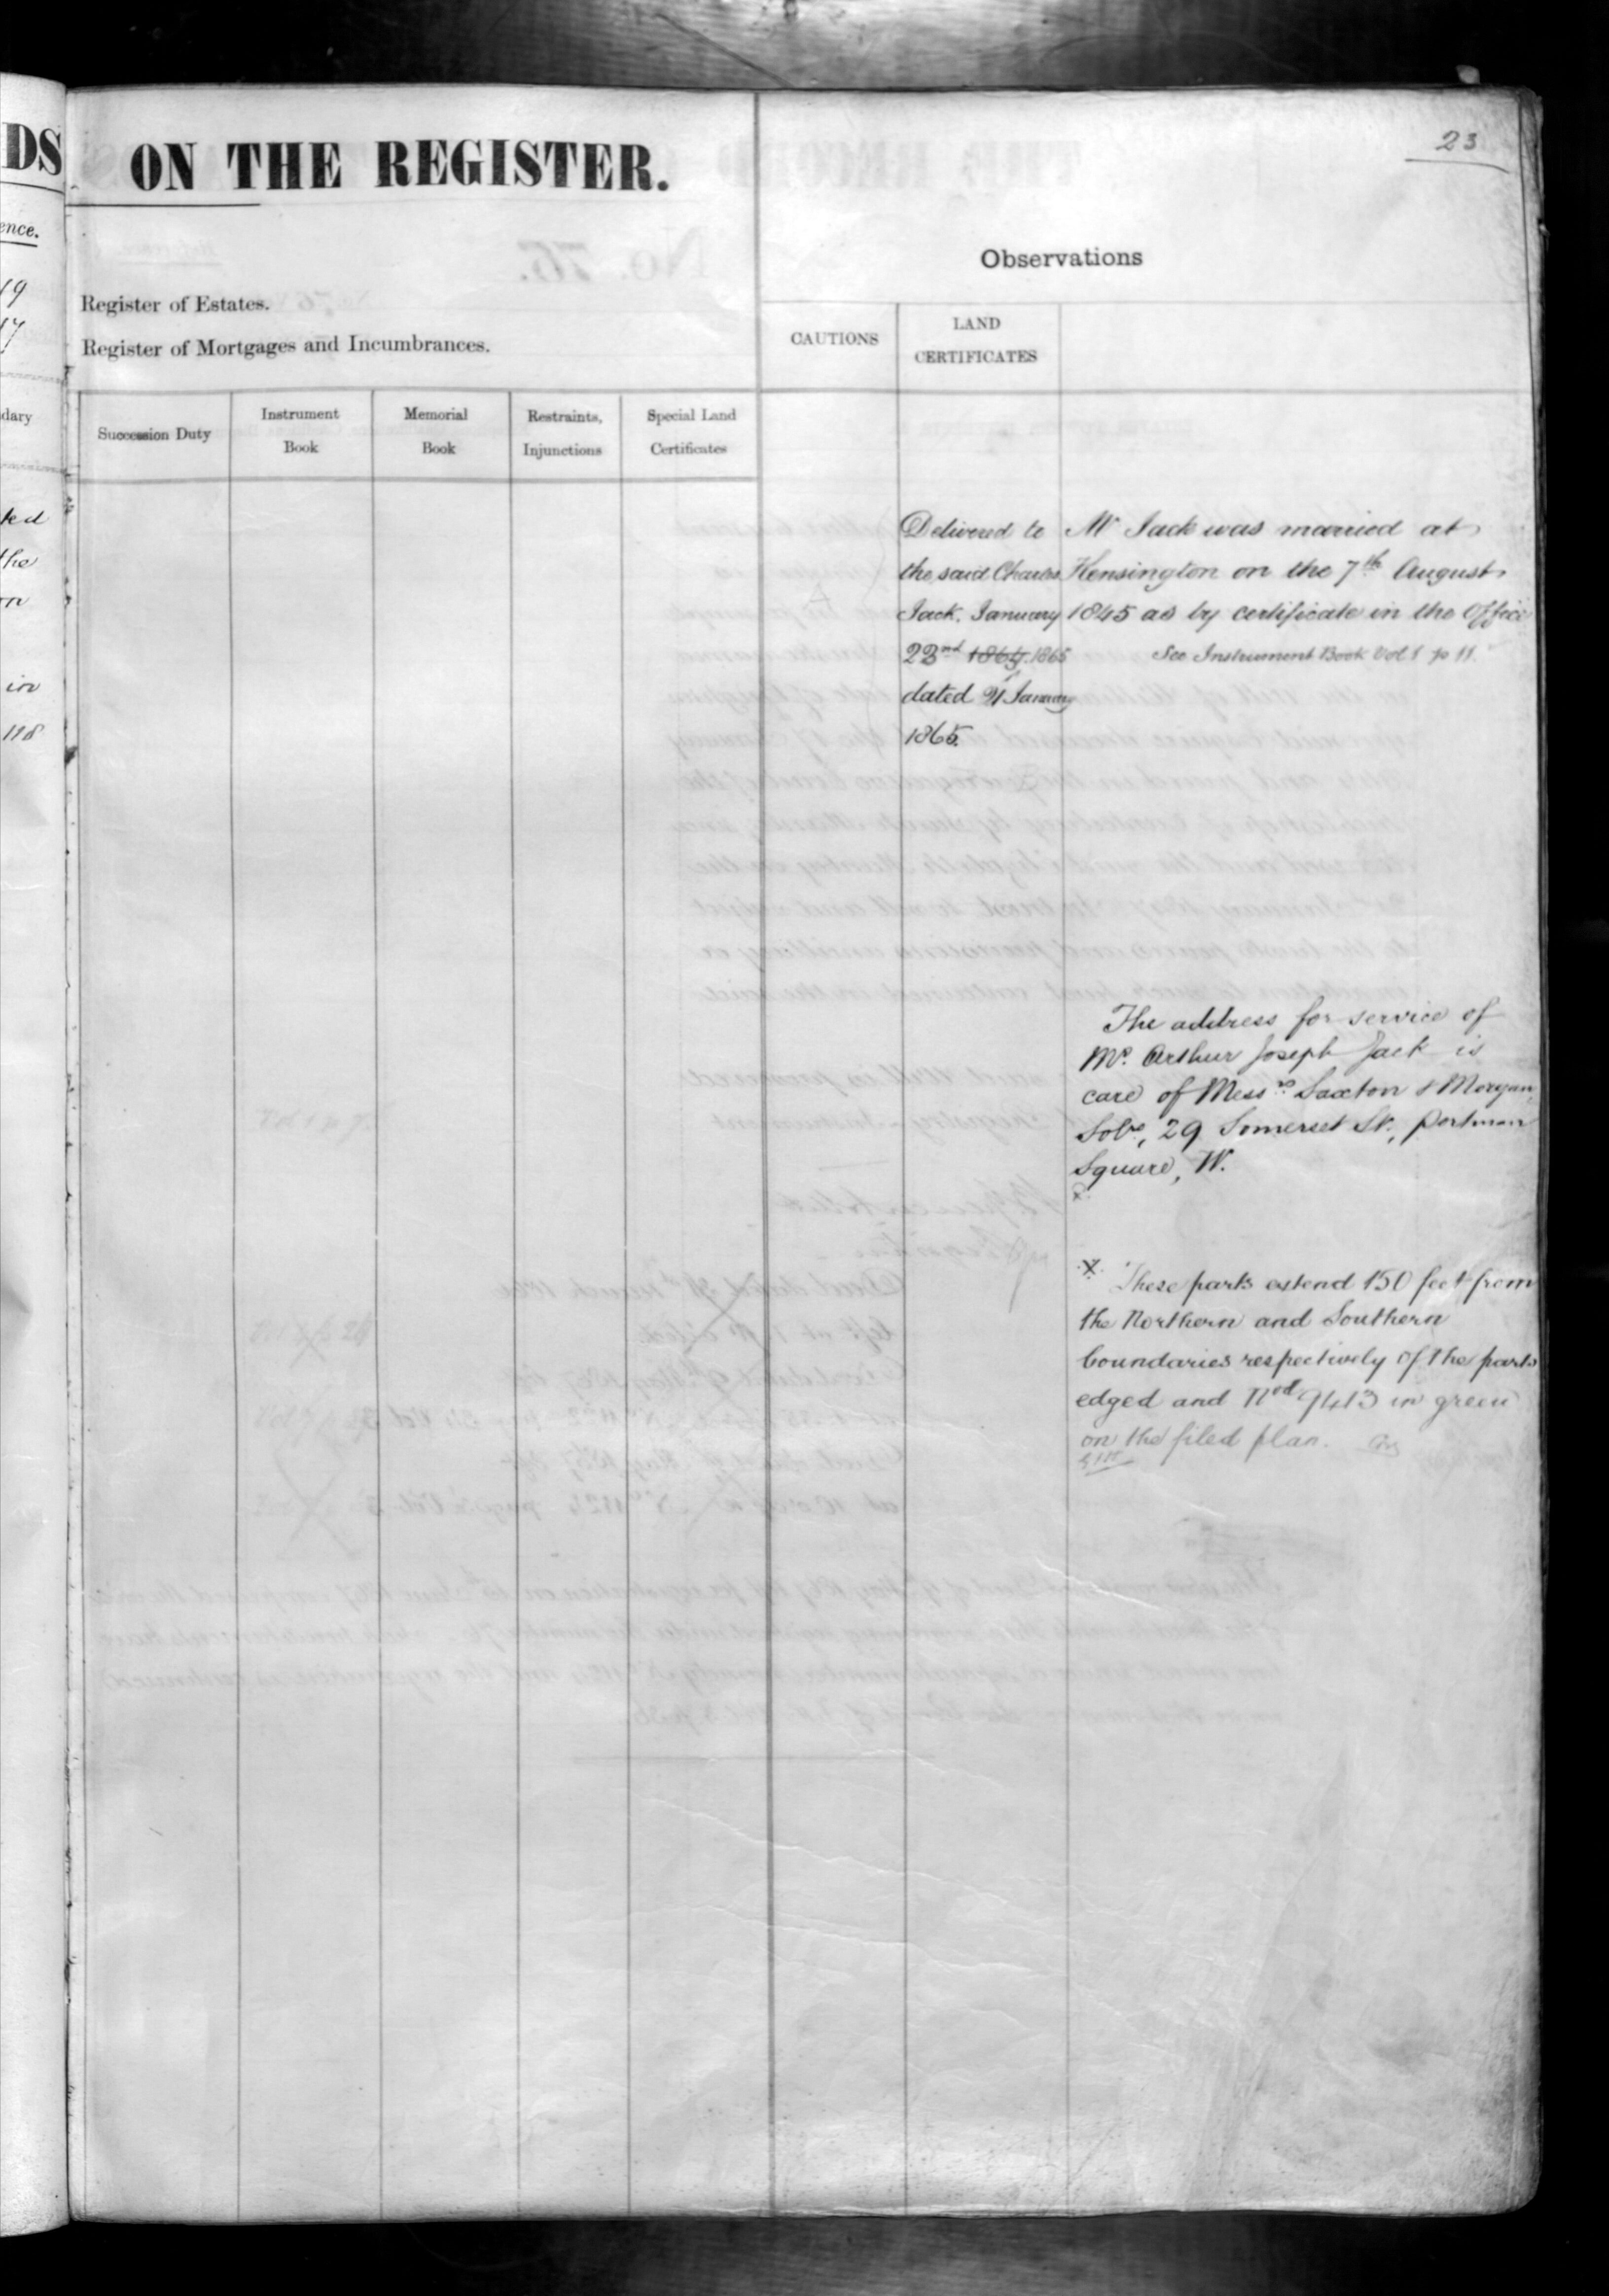 DS
ON THE REGISTER.
23
ence.
Observations
Register of Estates.
Register of Mortgages and Incumbrances.
CAUTIONS
LAND
CERTIFICATES
dary
Succession Duty
Instrument
Book
Memorial
Book
Restraints,
Injunctions
Special Land
Certificates
ked
the
on
in
118
Delivered to
the said Charles
Jack. January
23rd 1864. 1865
dated 21 January
1865.
Mr Jack was married at
Kensington on the 7th August
1845 as by certificate in the Office
See Instrument Book Vol 1 p 11.
The address for service of
Mr. Arthur Joseph Jack is
care of Messrs Saxton & Morgan,
Solrs, 29 Somerset St., Portman
Square, W.
These parts extend 150 feet from
the Northern and Southern
boundaries respectively of the parts
edged and Nod 9413 in green
on the filed plan.